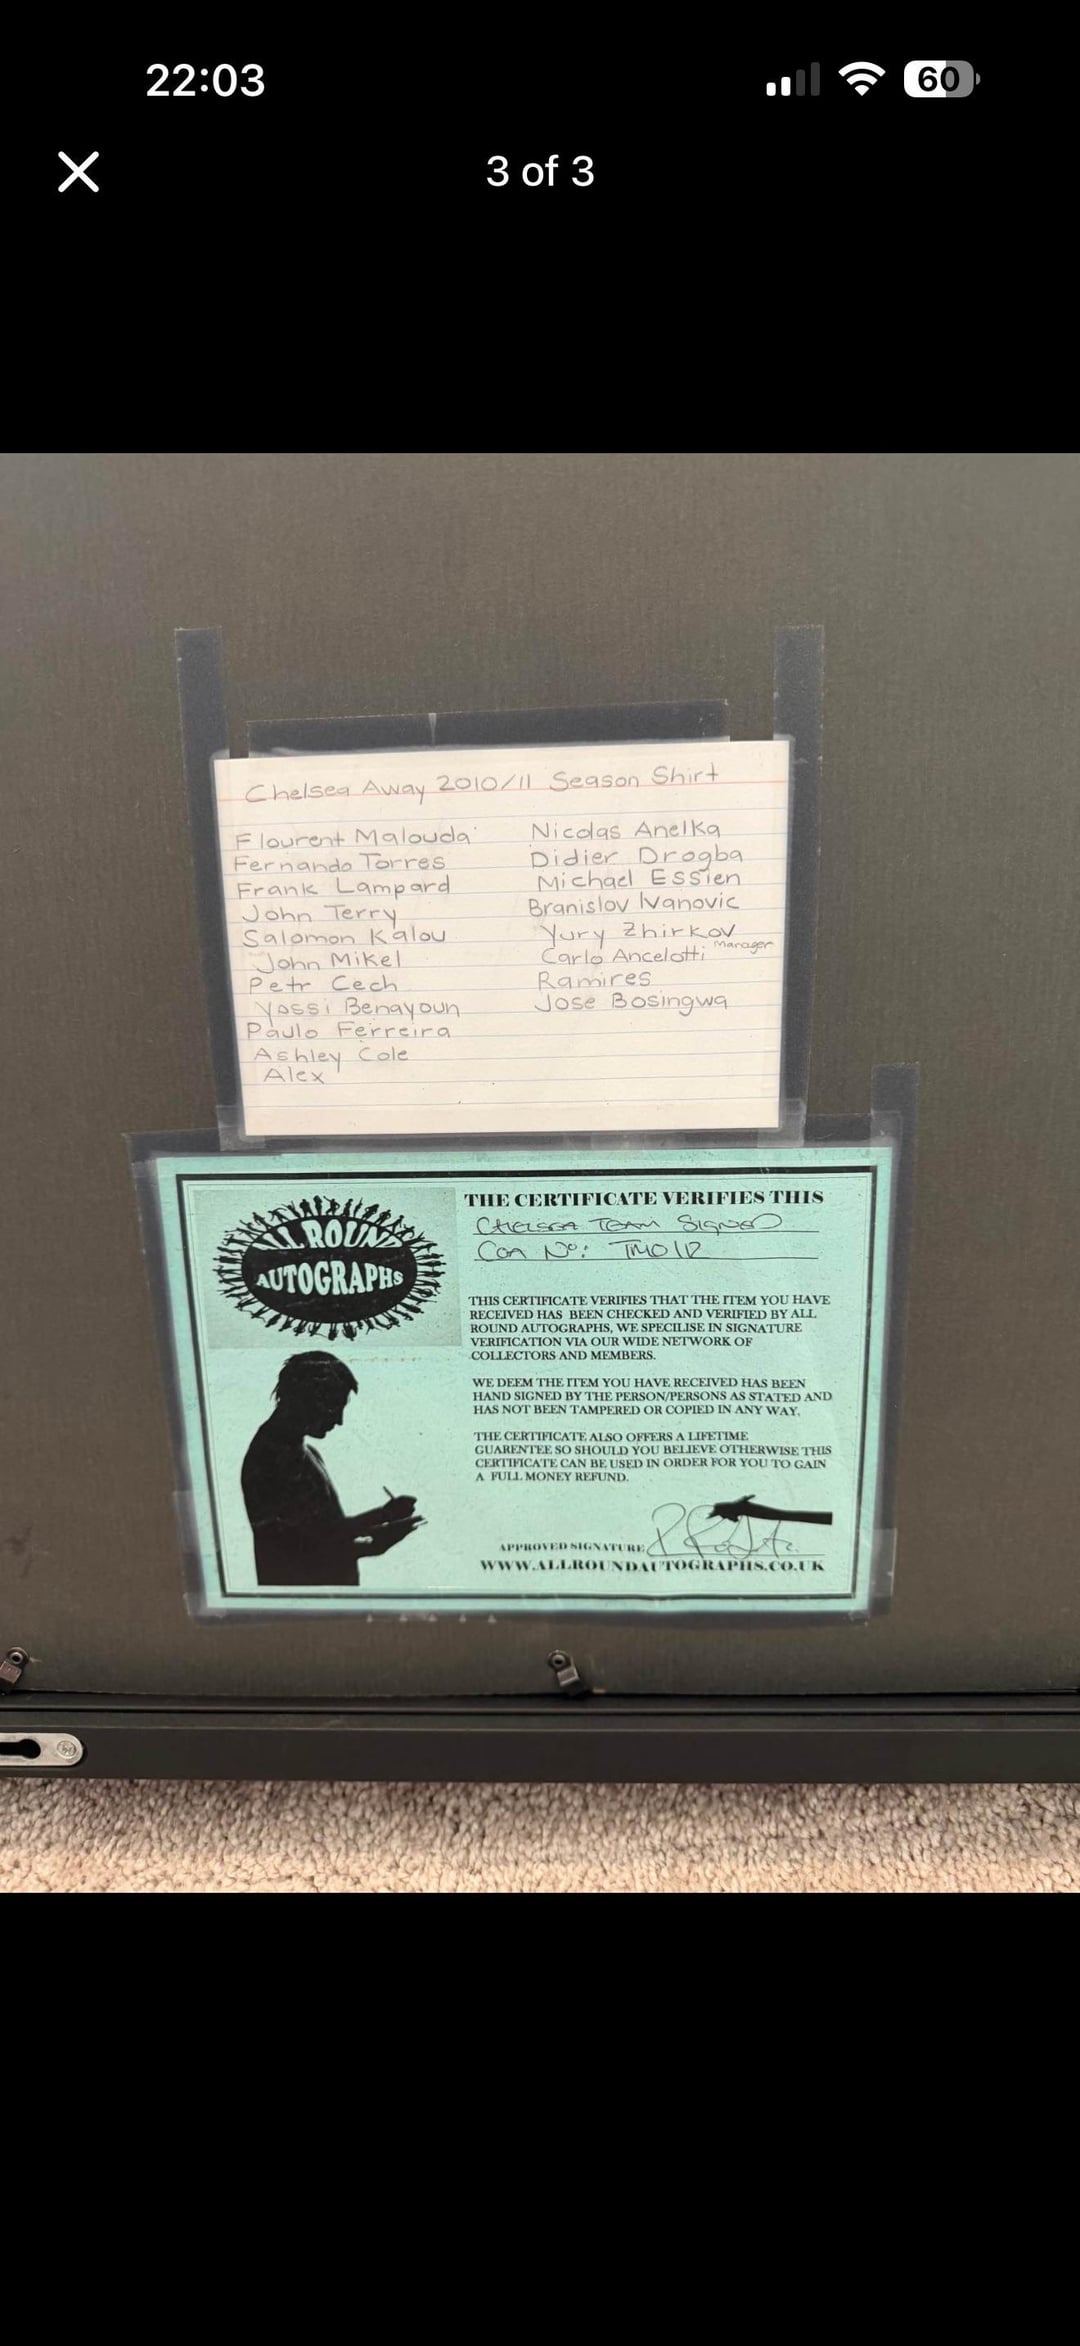 22:03
60
3 of 3
Chelsea Away 2010/11 Season Shirt
Flourent Malouda
Fernando Torres
Frank Lampard
John Terry
Salomon Kalou
John Mikel
Petr Cech
Yossi Benayoun
Paulo Ferreira
Ashley Cole
Alex
Nicolas Anelka
Didier Drogba
Michael Essien
Branislov Ivanovic
Yury Zhirkov
Carlo Ancelotti Manager
Ramires
Jose Bosingwa
ALL ROUND
AUTOGRAPHS
THE CERTIFICATE VERIFIES THIS
CHELSEA TEAM SIGNED
COA Nº:
THIS CERTIFICATE VERIFIES THAT THE ITEM YOU HAVE
RECEIVED HAS BEEN CHECKED AND VERIFIED BY ALL
ROUND AUTOGRAPHS, WE SPECILISE IN SIGNATURE
VERIFICATION VIA OUR WIDE NETWORK OF
COLLECTORS AND MEMBERS.
WE DEEM THE ITEM YOU HAVE RECEIVED HAS BEEN
HAND SIGNED BY THE PERSON/PERSONS AS STATED AND
HAS NOT BEEN TAMPERED OR COPIED IN ANY WAY.
THE CERTIFICATE ALSO OFFERS A LIFETIME
GUARENTEE SO SHOULD YOU BELIEVE OTHERWISE THIS
CERTIFICATE CAN BE USED IN ORDER FOR YOU TO GAIN
A FULL MONEY REFUND.
APPROVED SIGNATURE
WWW.ALLROUNDAUTOGRAPHS.CO.UK